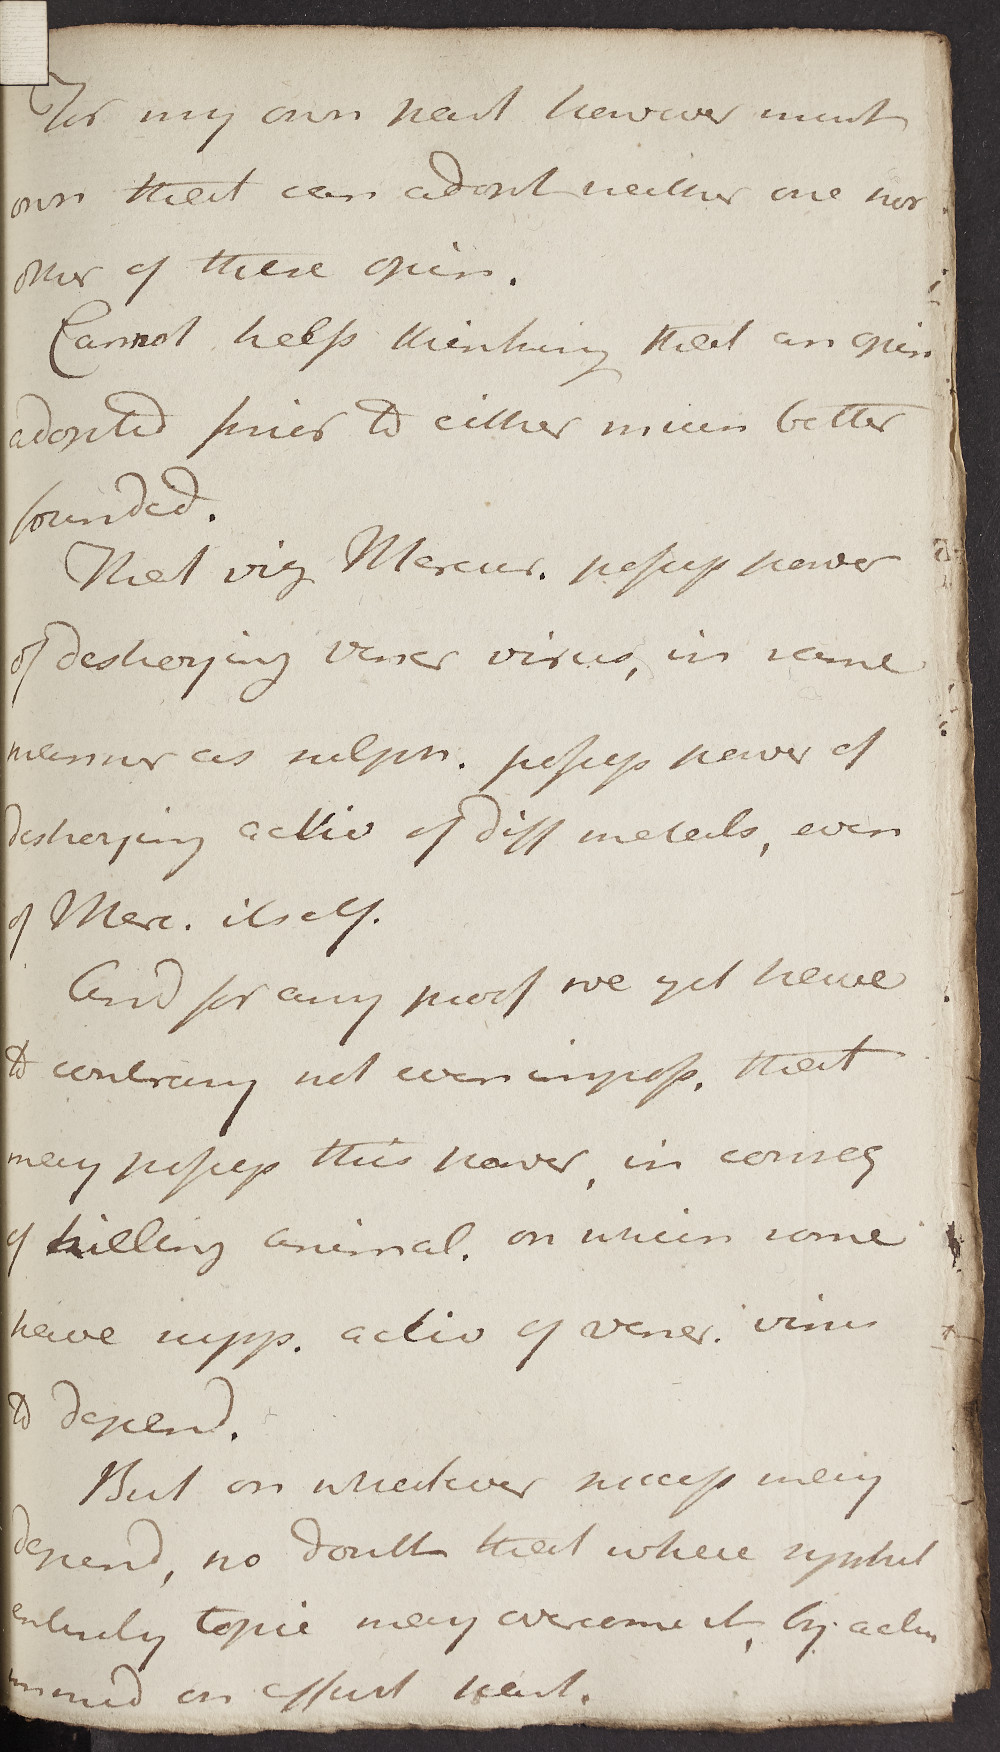 For my own part however must
own that can adopt neither one nor
other of these opin.
Cannot help thinking that an opin
adopted prior to either much better
founded.
That viz Mercur. possess power
of destroying vener virus, in same
manner as sulph. possess power of
destroying activ of diff metals, even
of Merc. itself.
And for any proof we yet have
to contrary not even imposs. that
may possess this power, in conseq
of killing animal. on which some
have supp. activ of vener. virus
to depend.
But on whatever success may
depend, no doubt that where syphil
entirely topic may overcome it, by action
on affect part.